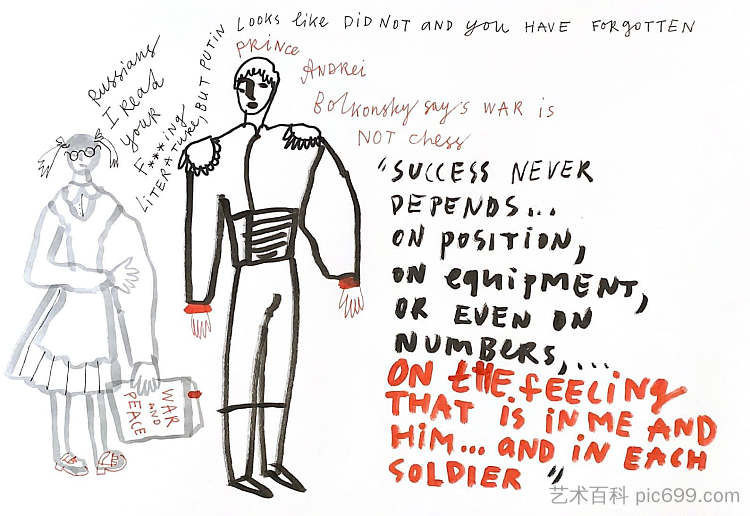 Russians
I Read
your
F***ing
Literature, BUT PUTIN
Looks like DID NOT AND you HAVE FORGOTTEN
PRINCE
ANDREI
Bolkonsky say's WAR is
NOT Chess
"SUCCESS NEVER
DEPENDS...
ON POSITION,
ON equipMENT,
OR EVEN ON
NUMBERS,....
ON tHE feELiNg
THAT iS iN ME AND
HiM... AND iN EACH
SOLDiER"
WAR
AND
PEACE
艺术百科 pic699.com